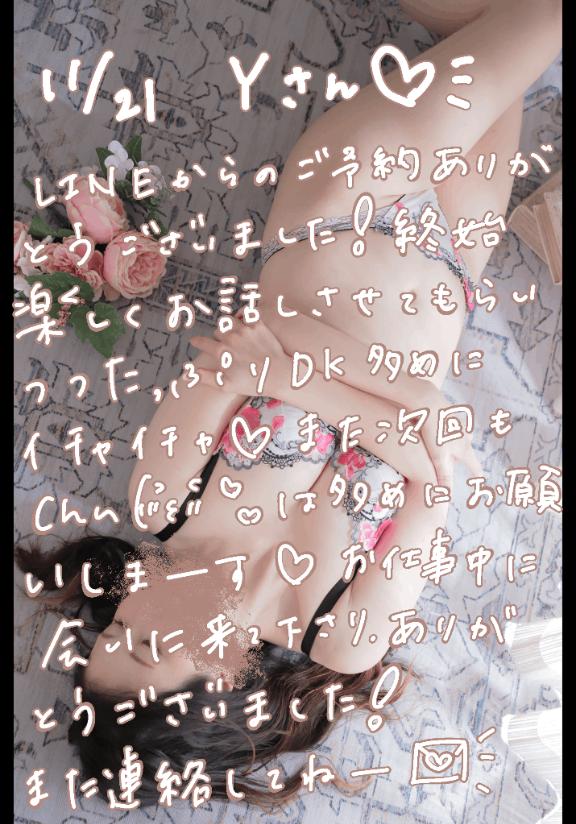 11/21 Yさん♡
LINEからのご予約ありが
とうございました!終始
楽しくお話しさせてもらい
つつた,,ぷりDK多めに
イチャイチャ♡また次回も
Chuは多めにお願
いしまーす♡お仕事中に
会いに来て下さり、ありが
とうございました!
また連絡してねー